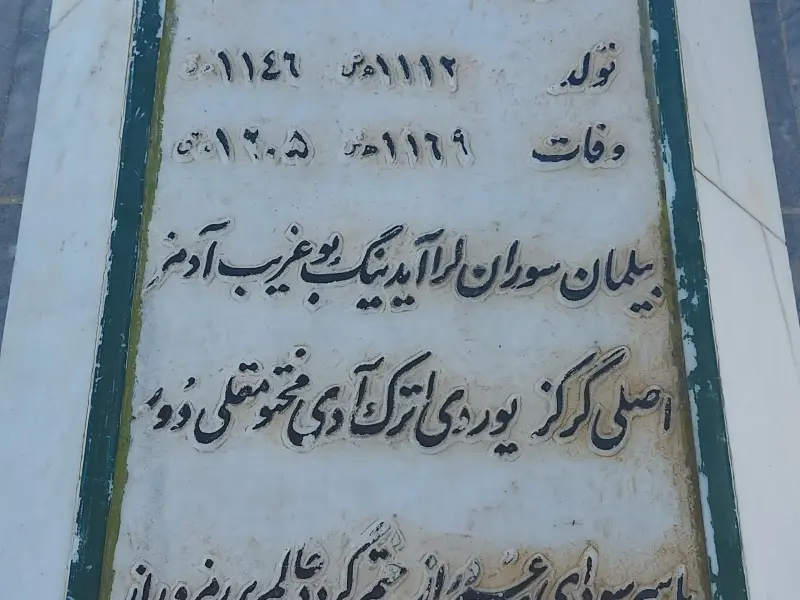 تولد ۱۱۱۲ ه‍ش ۱۱٤٦ ه‍ق
وفات ۱۱٦۹ ه‍ش ۱۲۰۵ ه‍ق
بیلمان سوران لرا آیدینگ بو غریب آدمز
اصلی گرگز یوردی اترک آدی مختومقلی دور